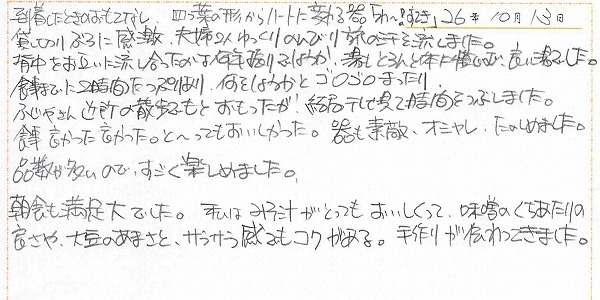 到着したときのおもてなし、四つ葉の形からハートに変わる器「わ〜!すてき」26年10月13日
貸し切りぶろに感激、夫婦2人ゆっくりのんびり 旅の汗を流しました。
背中をお互いに流しあったのは何年振りでしょうか、湯もとろんと体に優しい良い湯でした。
食事まで2時間たっぷりあり、何をしようかとゴロゴロまったり、
ふじやさん近所の散歩もとおもったが、結局テレビ見て時間をつぶしました。
食事 良かった良かった。と〜ってもおいしかった。器も素敵、オシャレ、たのしめました。
品数が多いので、すごく楽しめました。
朝食も満足大でした。私はみそ汁がとっても おいしくって、味噌のくちあたりの
良さや、大豆のあまさと、サラサラ感でもコクがある。手作りが伝わってきました。